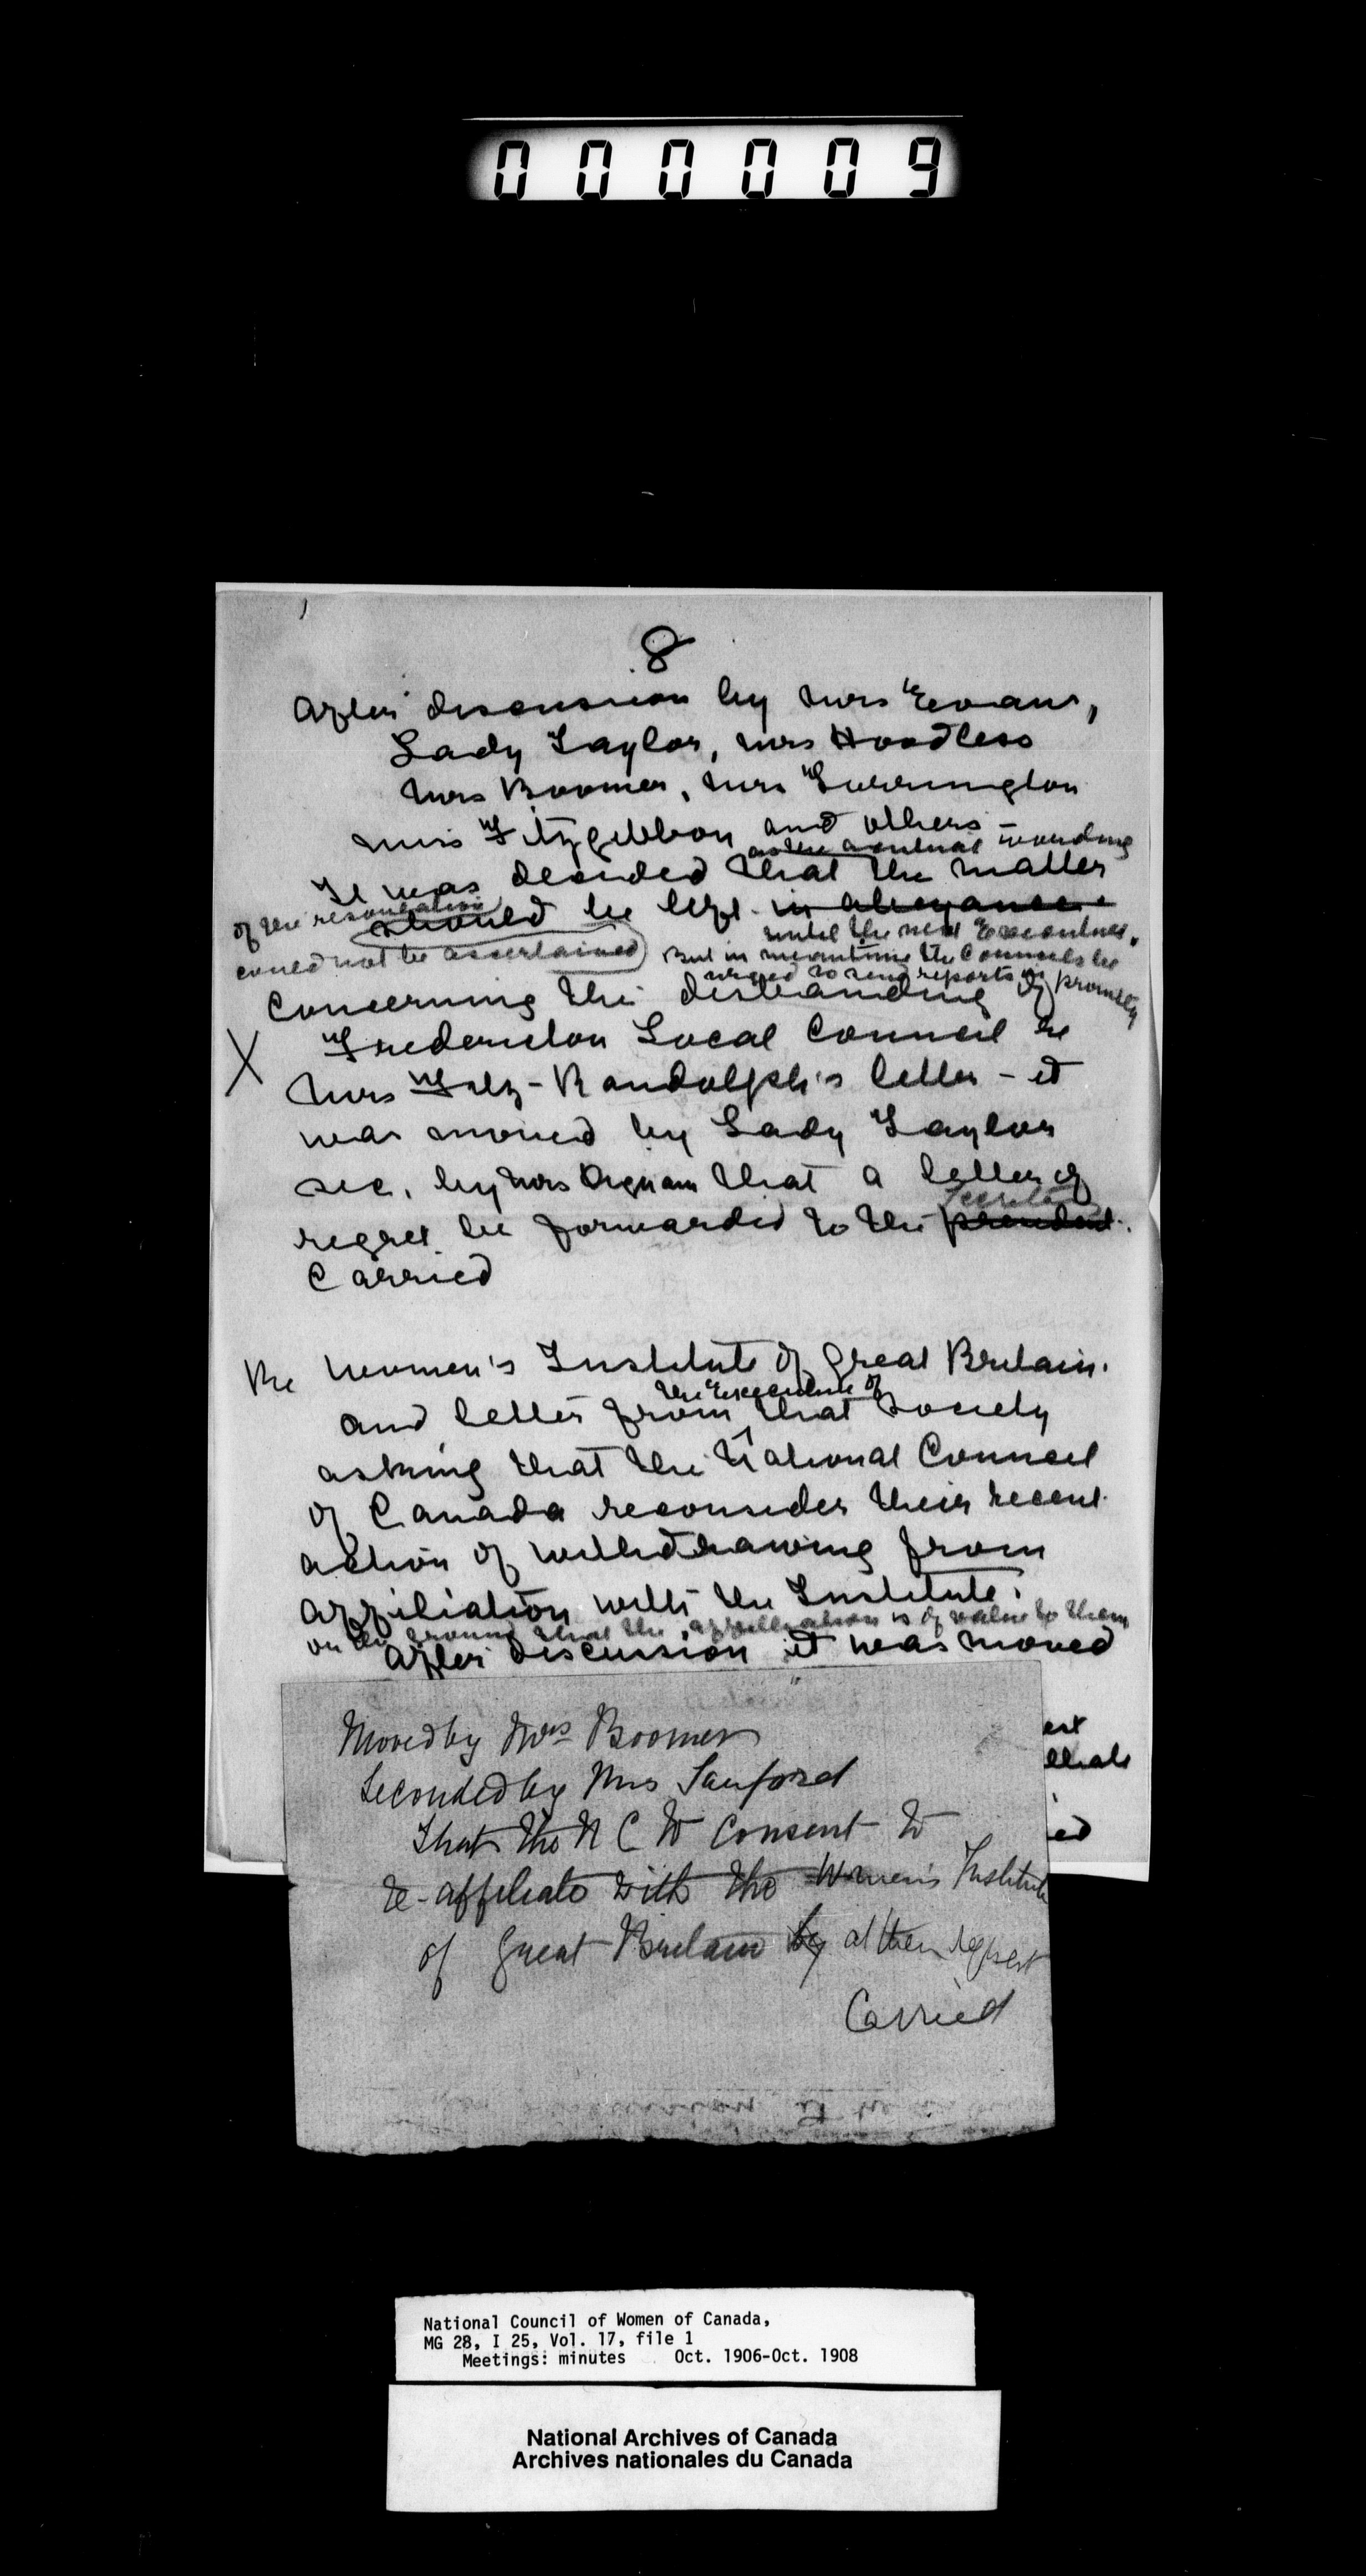 000009
8
After discussion by Mrs Evans,
Lady Taylor, Mrs Hoodless
Mrs Boomer, Mrs Torrington
Miss Fitzgibbon and others –
as the actual wording
It was decided that the matter
of the resolution
should be left in abeyance.
until the next Executive.
could not be ascertained) But in meantime the Councils be
urged to send reports in promptly
Concerning the disbanding of
X Fredericton Local Council re
Mrs Fitz-Randolph's letter – it
was moved by Lady Taylor
sec. by Mrs Dignam that a letter of
Secretary
regret be forwarded to the president.
Carried
Re Women's Institute of Great Britain.
the Executive of
and letter from that Society
asking that the National Council
of Canada reconsider their recent
action of withdrawing from
affiliation with the Institute.
on the ground that the affiliation is of value to them
After discussion it was moved
Moved by Mrs Boomer
Seconded by Mrs Sanford
That the N C W consent to
re-affiliate with the Women's Institute
of Great Britain by at their request
Carried
National Council of Women of Canada,
MG 28, I 25, Vol. 17, file 1
Meetings: minutes Oct. 1906-Oct. 1908
National Archives of Canada
Archives nationales du Canada